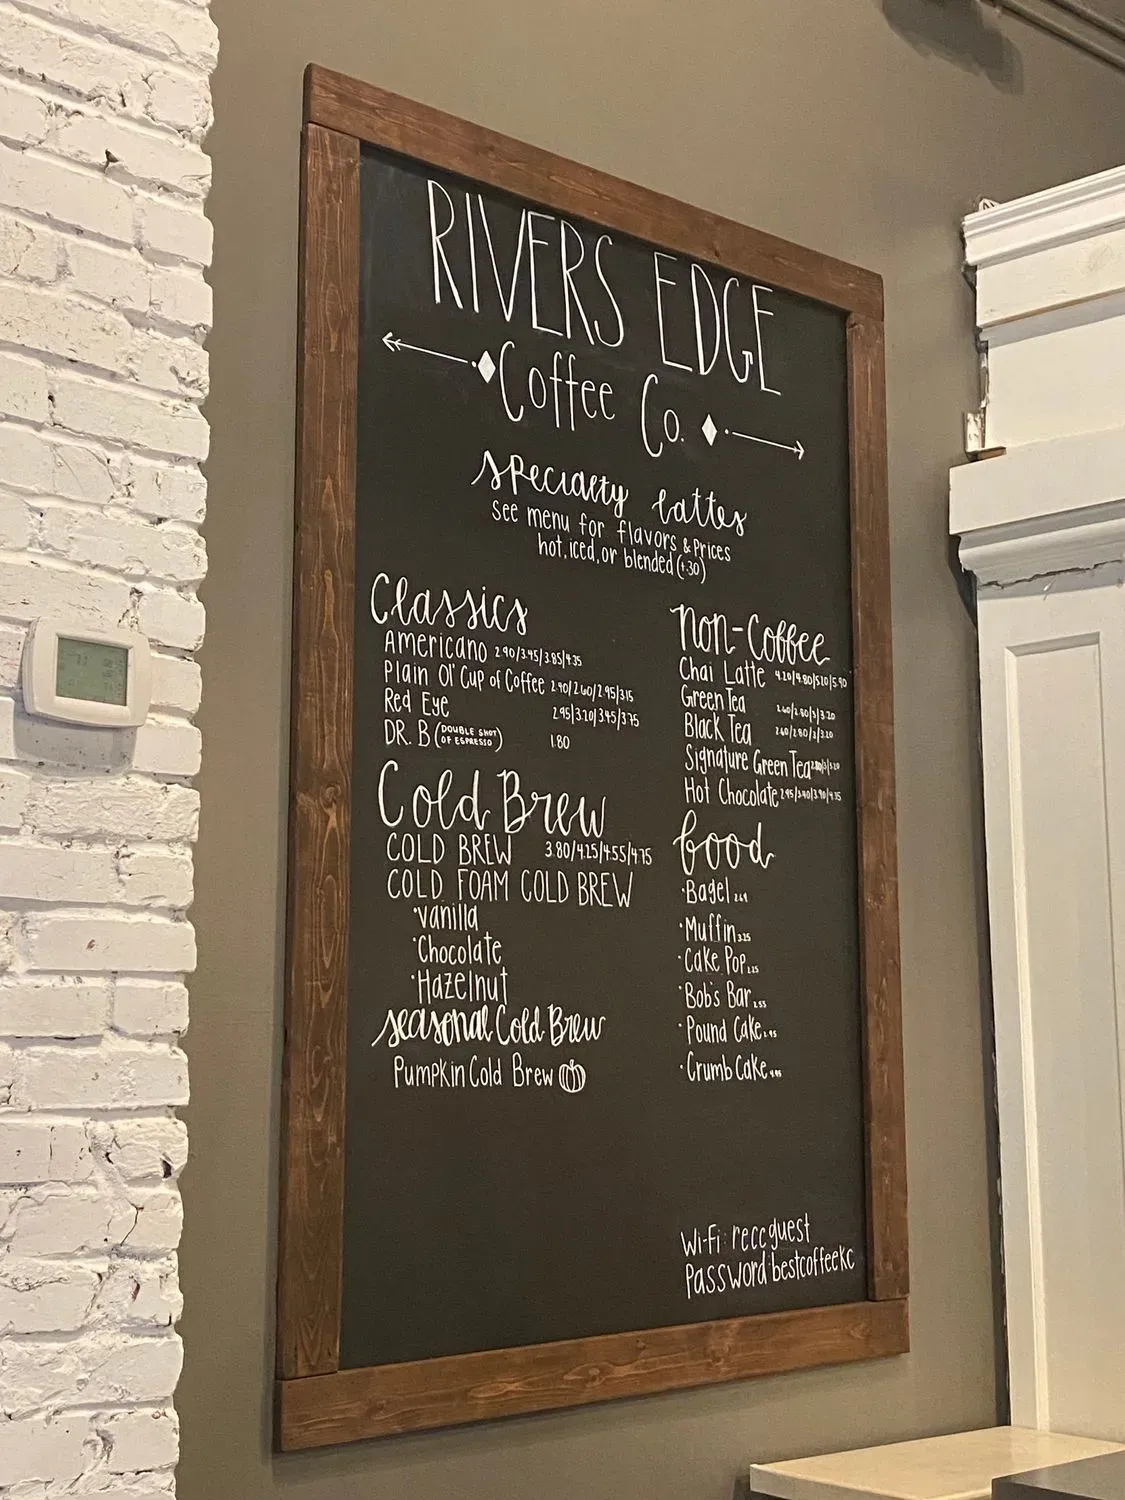 RIVERS EDGE
Coffee Co.
specialty lattes
see menu for flavors & prices
hot, iced, or blended (+.30)
Classics
Americano 2.90/3.45/3.85/4.35
Plain Ol' Cup of Coffee 2.40/2.60/2.95/3.15
Red Eye 2.95/3.20/3.45/3.75
DR. B (DOUBLE SHOT OF ESPRESSO) 1.80
Cold Brew
COLD BREW 3.80/4.25/4.55/4.75
COLD FOAM COLD BREW
·Vanilla
·Chocolate
·Hazelnut
seasonal Cold Brew
Pumpkin Cold Brew
Non-Coffee
Chai Latte 4.20/4.80/5.20/5.90
Green Tea 2.60/2.80/3/3.20
Black Tea 2.60/2.80/3/3.20
Signature Green Tea
Hot Chocolate 2.95/3.40/3.90/4.35
food
·Bagel
·Muffin
·Cake Pop
·Bob's Bar
·Pound Cake
·Crumb Cake
Wi-Fi: reccguest
Password: bestcoffeekc